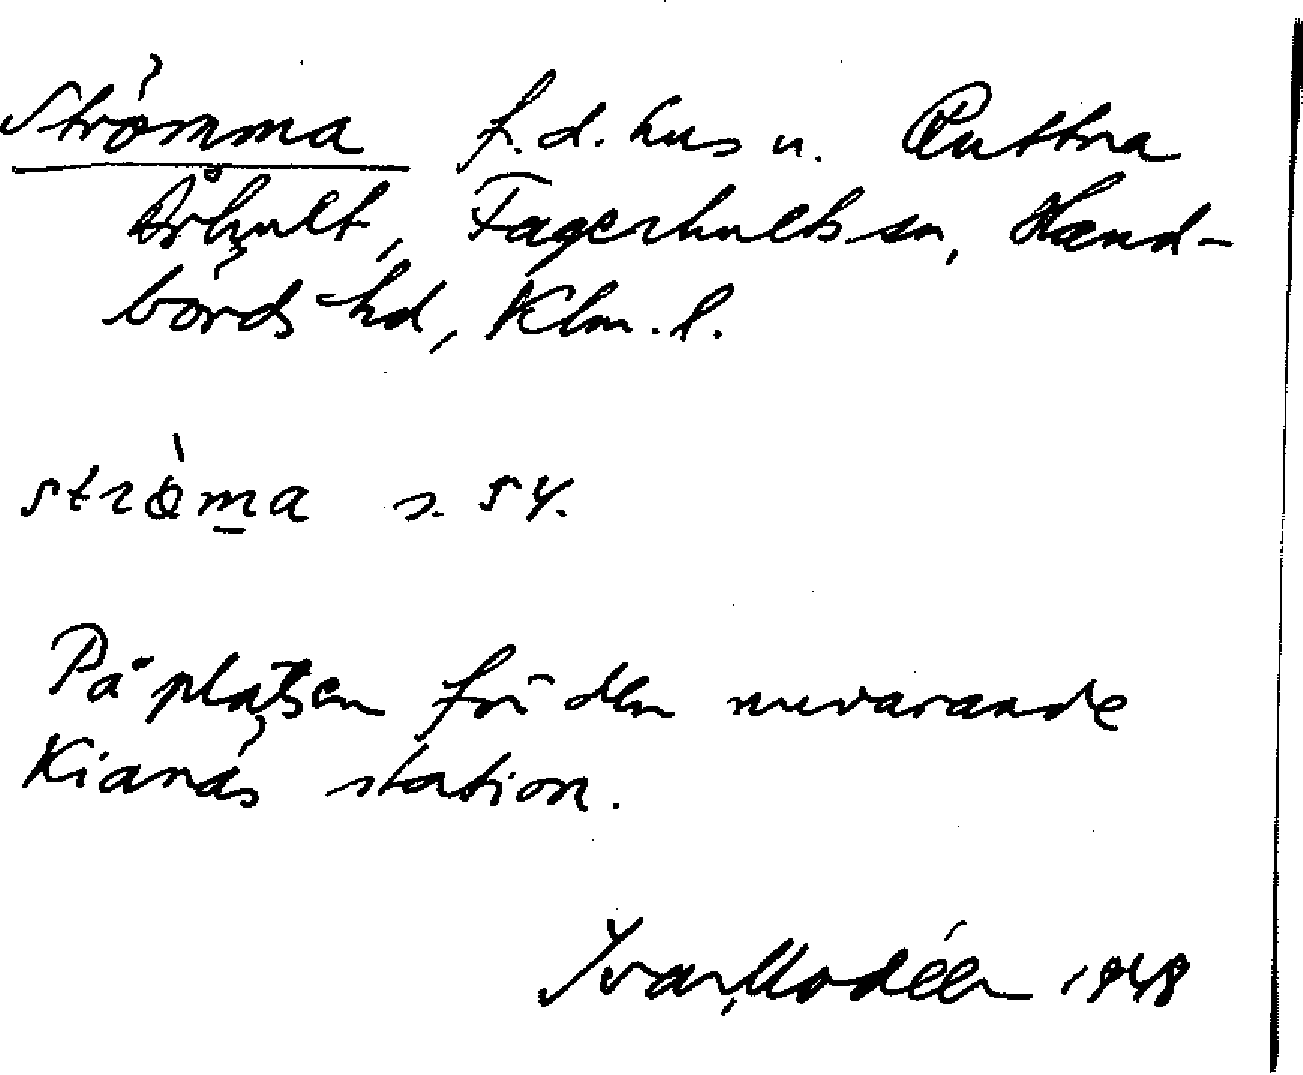 Strömma f.d. hus u. Ruttna
Århult, Fagerhults sn, Hand-
börds hd, Klm. l.
strö̀ma s. 54.
På platsen för den nuvarande
Kianäs station.
Ivar Modéer 1948